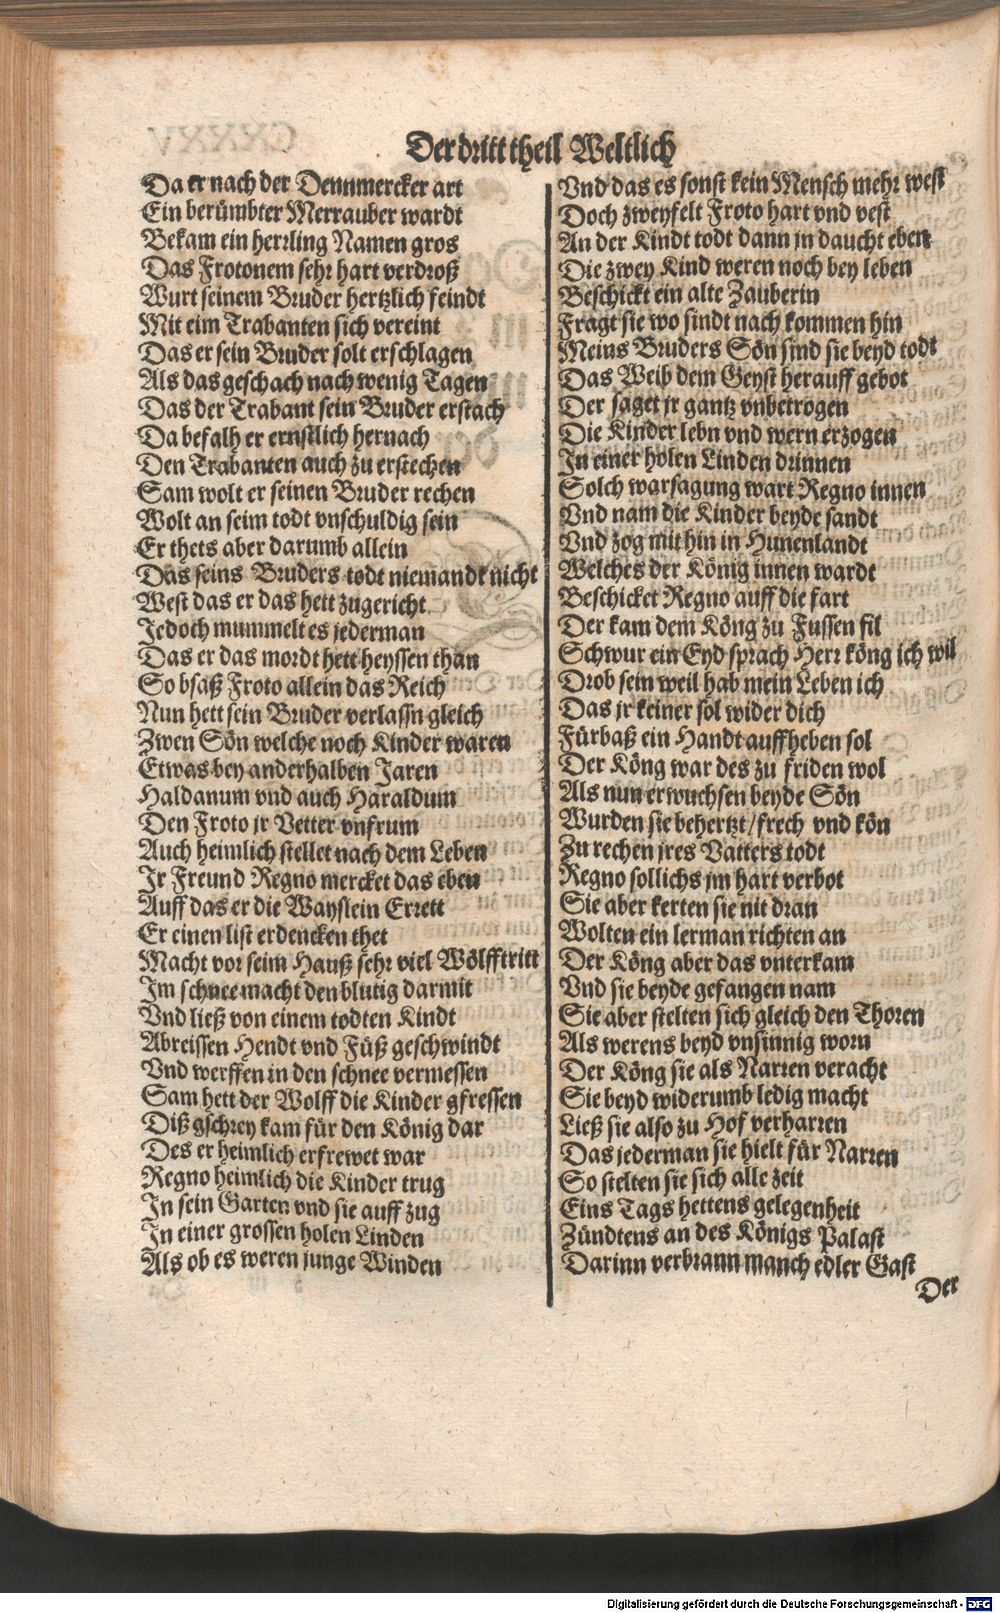 Der dritt theil Weltlich
Da er nach der Dennmercker art
Ein berümbter Merrauber wardt
Bekam ein herrling Namen gros
Das Frotonem sehr hart verdroß
Wurt seinem Bruder hertzlich feindt
Mit eim Trabanten sich vereint
Das er sein Bruder solt erschlagen
Als das geschach nach wenig Tagen
Das der Trabant sein Bruder erstach
Da befalh er ernstlich hernach
Den Trabanten auch zu erstechen
Sam wolt er seinen Bruder rechen
Wolt an seim todt vnschuldig sein
Er thets aber darumb allein
Das seins Bruders todt niemandt nicht
West das er das hett zugericht
Jedoch mummelt es jederman
Das er das mordt hett heyssen than
So bsaß Froto allein das Reich
Nun hett sein Bruder verlassn gleich
Zwen Sön welche noch Kinder waren
Etwas bey anderhalben Jaren
Haldanum vnd auch Haraldum
Den Froto jr Vetter vnfrum
Auch heimlich stellet nach dem Leben
Jr Freund Regno mercket das eben
Auff das er die Wayslein Errett
Er einen list erdencken thet
Macht vor seim Hauß sehr viel Wölfftritt
Im schnee macht den blutig darmit
Vnd ließ von einem todten Kindt
Abreissen Hendt vnd Füß geschwindt
Vnd werffen in den schnee vermessen
Sam hett der Wolff die Kinder gfressen
Diß gschrey kam für den König dar
Des er heimlich erfrewet war
Regno heimlich die Kinder trug
In sein Garten vnd sie auff zug
In einer grossen holen Linden
Als ob es weren junge Winden
Vnd das es sonst kein Mensch mehr west
Doch zweyfelt Froto hart vnd vest
An der Kindt todt dann jn daucht eben
Die zwey Kind weren noch bey leben
Beschickt ein alte Zauberin
Fragt sie wo sindt nach kommen hin
Meins Bruders Sön sind sie beyd todt
Das Weib dem Geyst herauff gebot
Der saget jr gantz vnbetrogen
Die Kinder lebn vnd wern erzogen
In einer holen Linden drinnen
Solch warsagung wart Regno innen
Vnd nam die Kinder beyde sandt
Vnd zog mit hin in Hunenlandt
Welches der König innen wardt
Beschicket Regno auff die fart
Der kam dem Köng zu Fussen fil
Schwur ein Eyd sprach Herr köng ich wil
Drob sein weil hab mein Leben ich
Das jr keiner sol wider dich
Fürbaß ein Handt auffheben sol
Der Köng war des zu friden wol
Als nun erwuchsen beyde Sön
Wurden sie behertzt/frech vnd kön
Zu rechen jres Vatters todt
Regno sollichs jm hart verbot
Sie aber kerten sie nit dran
Wolten ein lerman richten an
Der Köng aber das vnterkam
Vnd sie beyde gefangen nam
Sie aber stelten sich gleich den Thoren
Als werens beyd vnsinnig worn
Der Köng sie als Narren veracht
Sie beyd widerumb ledig macht
Ließ sie also zu Hof verharren
Das jederman sie hielt für Narren
So stelten sie sich alle zeit
Eins Tags hettens gelegenheit
Zündtens an des Königs Palast
Darinn verbrann manch edler Gast
Der
Digitalisierung gefördert durch die Deutsche Forschungsgemeinschaft - DFG